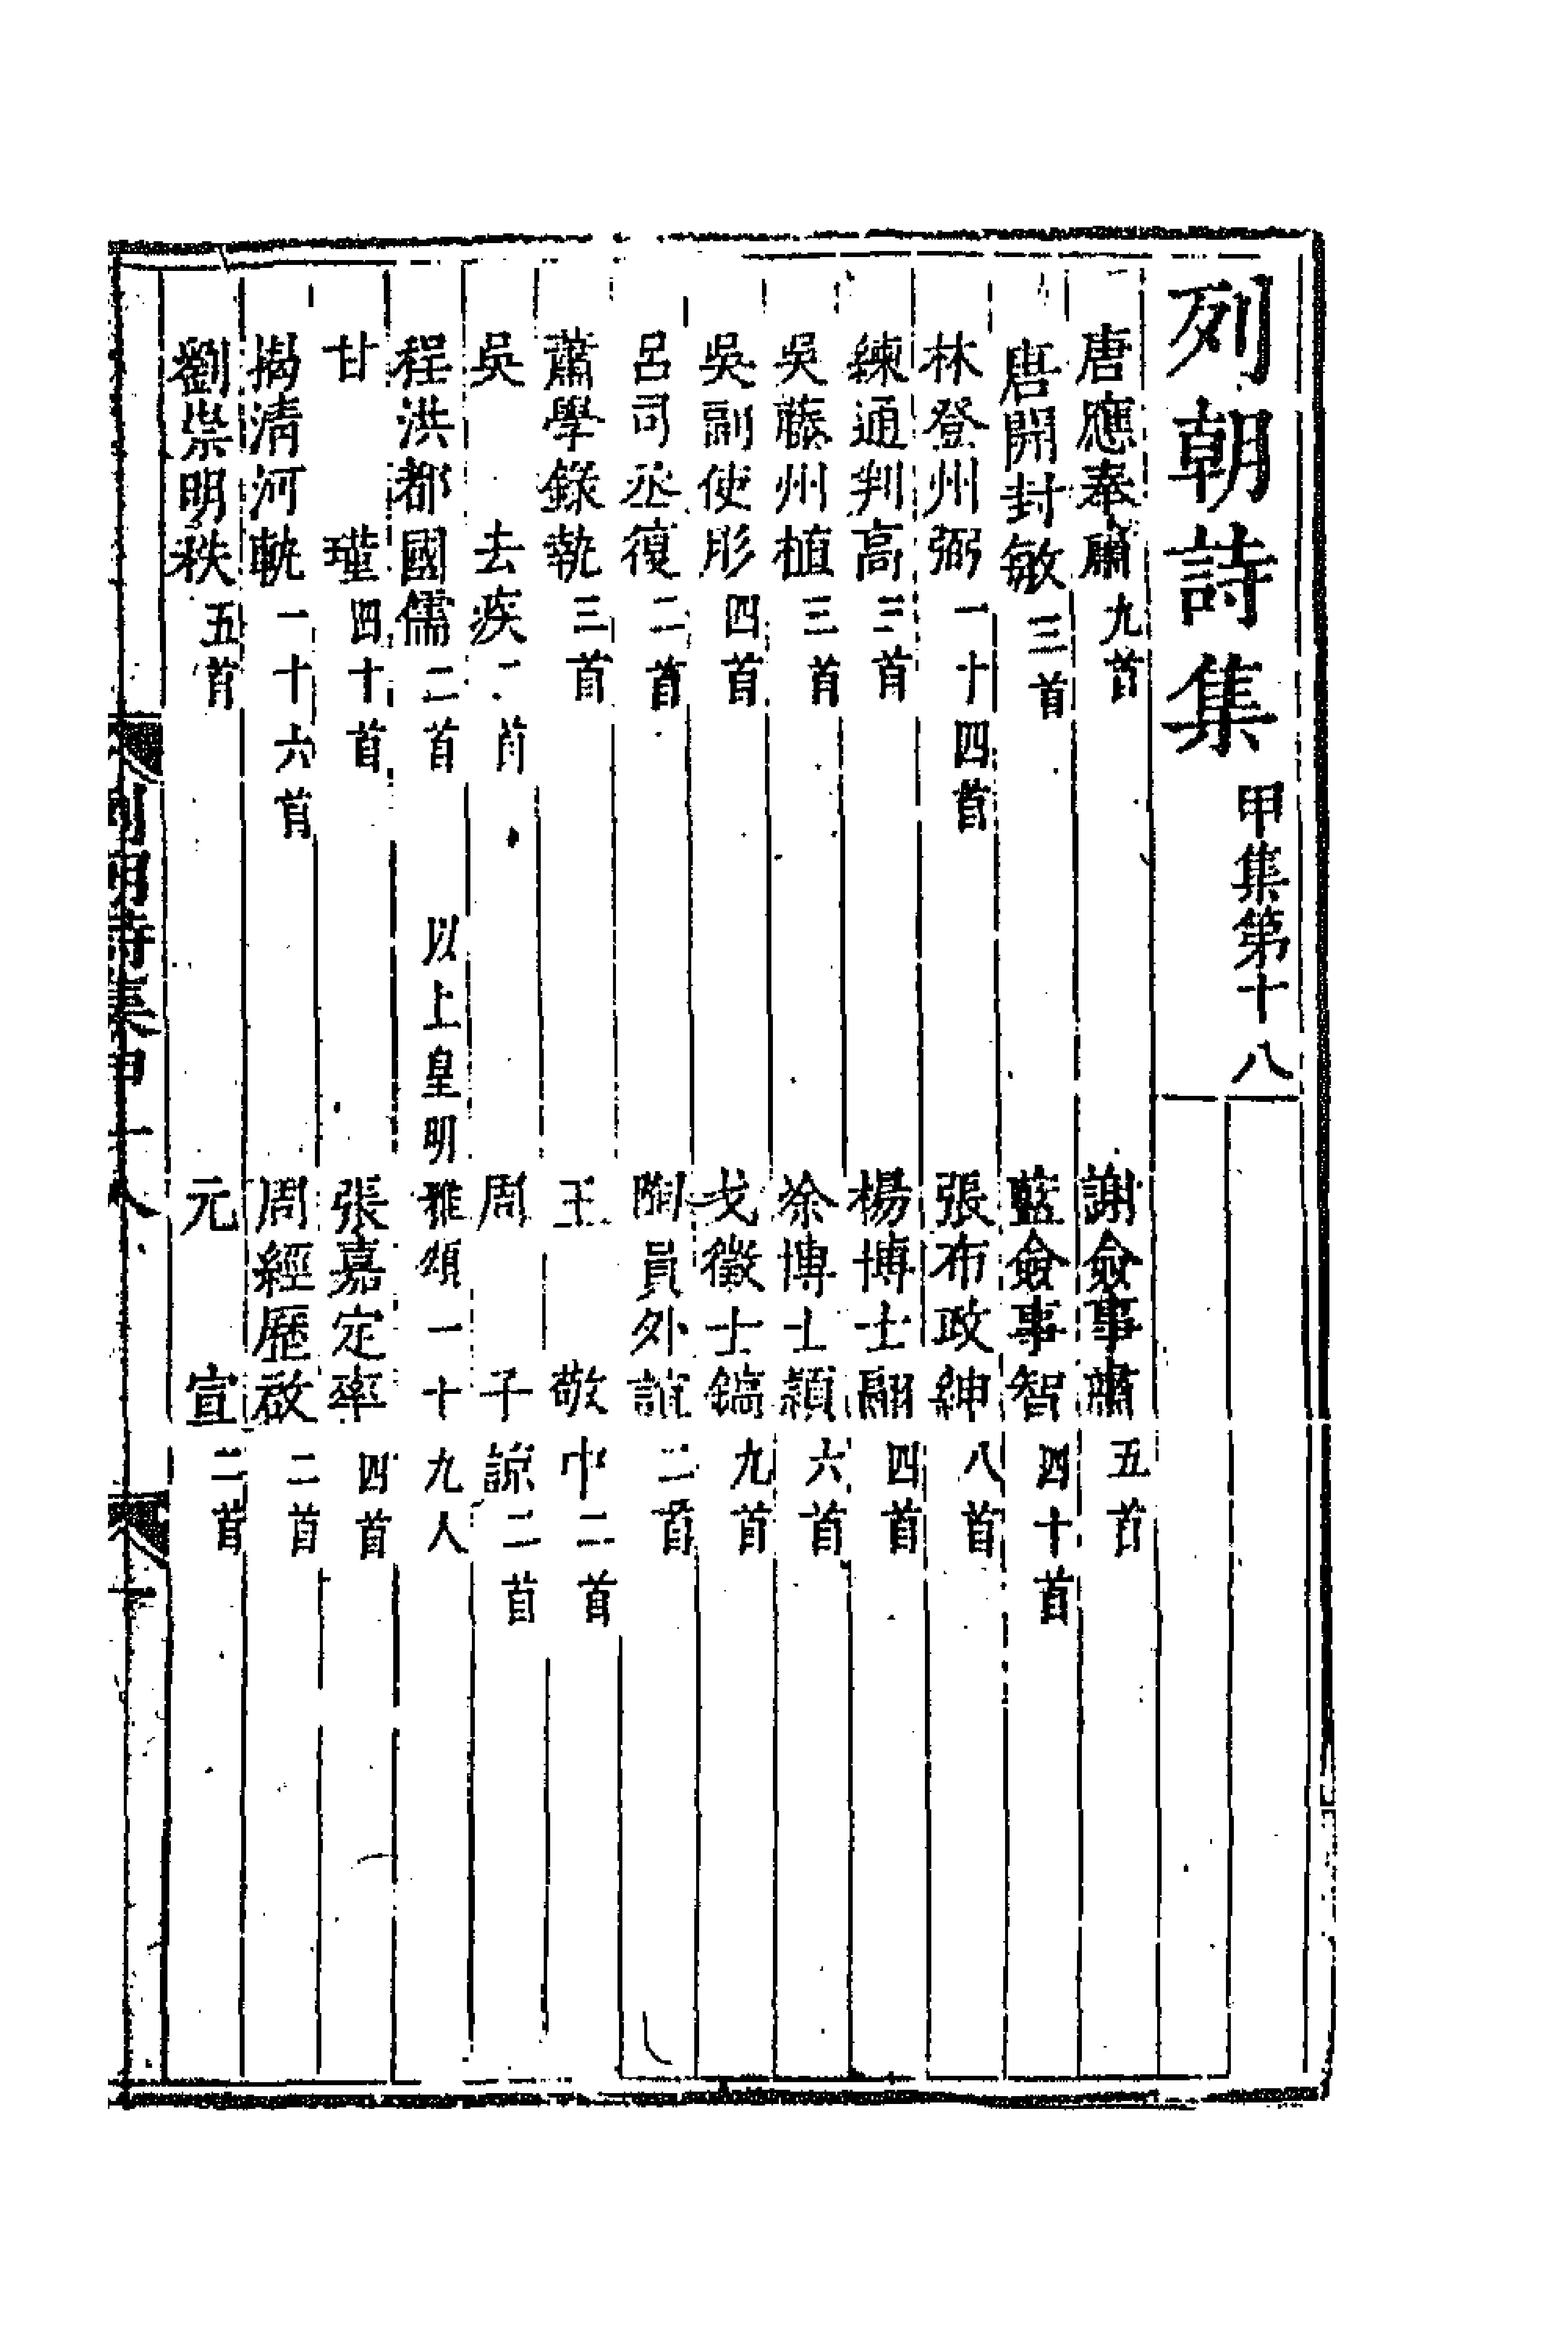 列朝詩集 甲集第十八
唐應奉肅 九首 謝僉事肅 五首
唐開封敏 三首 藍僉事智 四十首
林登州弼 一十四首 張布政紳 八首
練通判高 三首 楊博士翮 四首
吳藤州植 三首 涂博士穎 六首
吳副使彤 四首 戈徵士鎬 九首
呂司丞復 二首 陶員外誼 二首
蕭學錄執 三首 王敬中 二首
吳去疾 二首 周子諒 二首
程洪都國儒 二首 以上皇明雅頌一十九人
甘瑾 四十首 張嘉定率 四首
揭清河軌 一十六首 周經歷啟 二首
劉崇明秩 五首 元宣 二首
列朝詩集甲十八 一